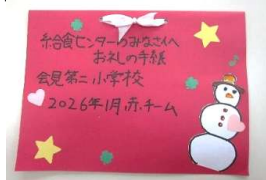 給食センターのみなさんへ
お礼の手紙
会見第二小学校
2026年1月.赤チーム